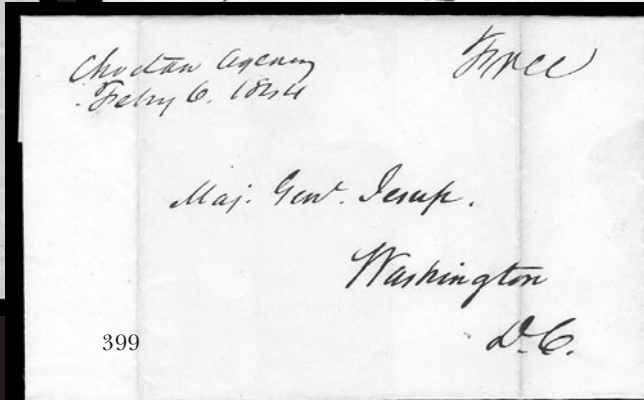 Choctaw Agency
Feby 6. 1844
Free
Maj. Genl. Jesup.
Washington
D.C.
399